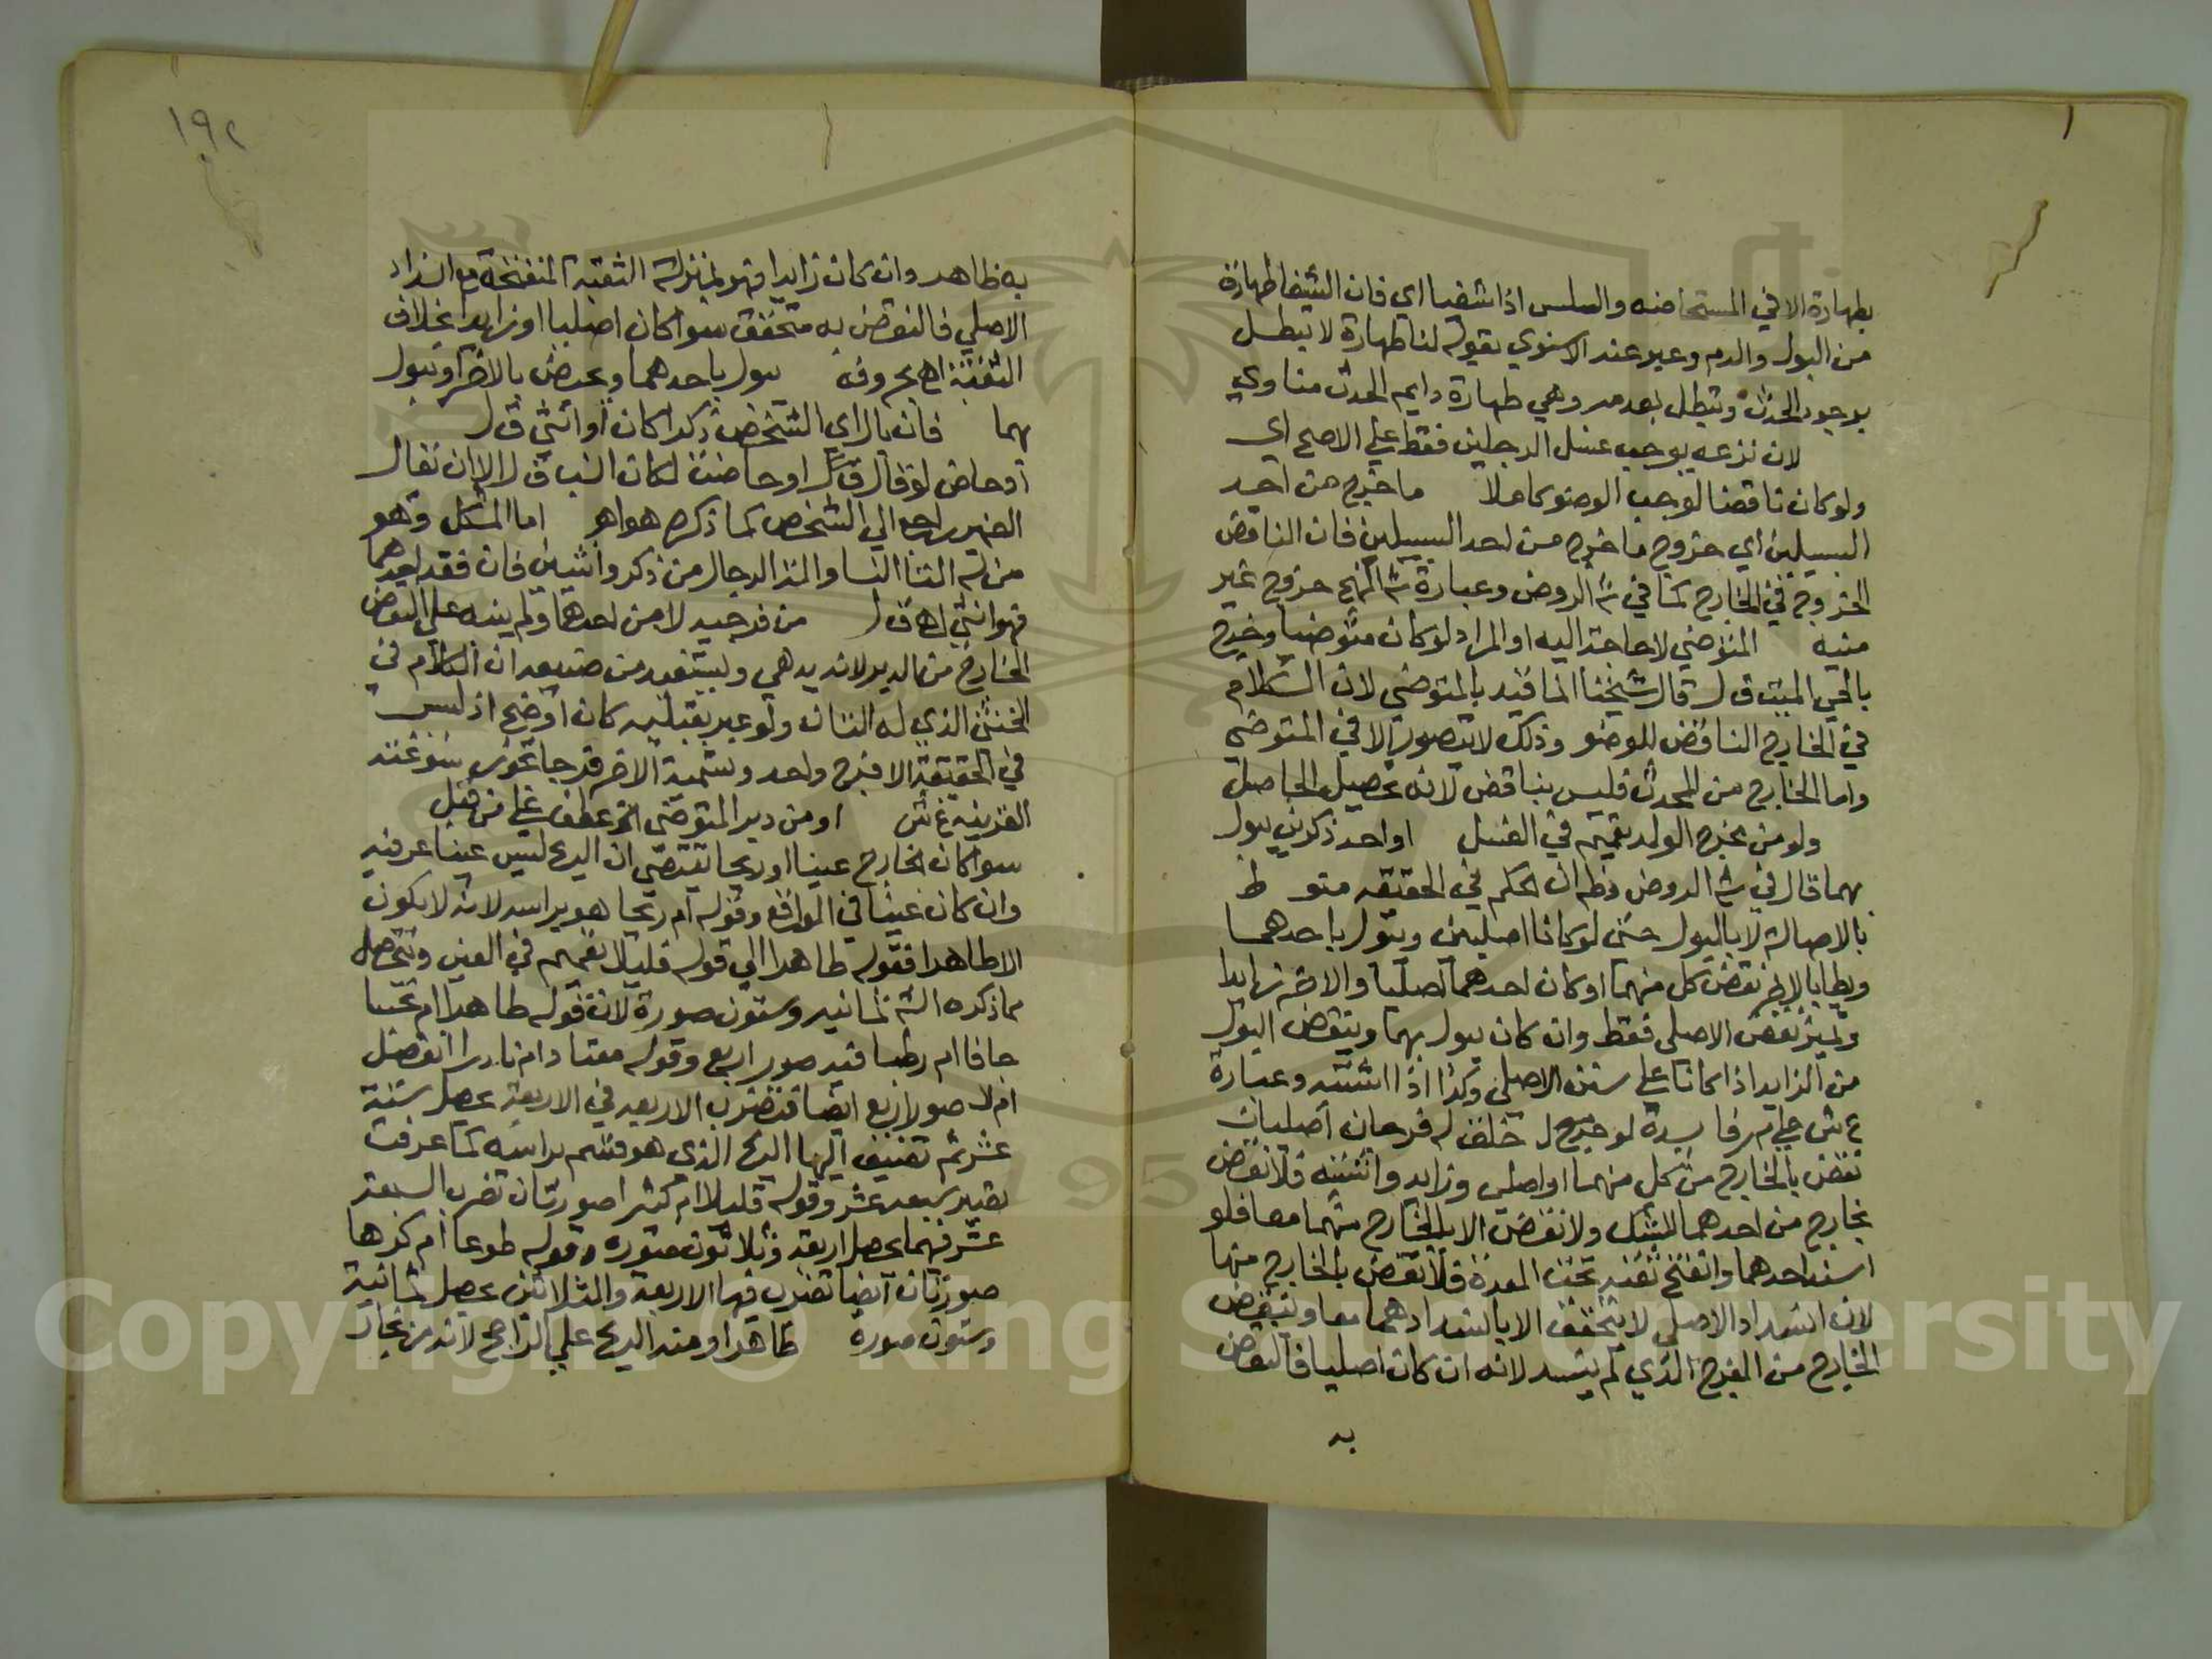 بطهارة الا في المستحاضه والسلس اذا شفيا اي فان الشفا طهارة
من البول والدم وعبر عند الاسنوي بقوله لنا طهارة لا تبطل
بوجود الحدث وتبطل بعدمه وهي طهارة دايم الحدث مناوي
لان نزعه يوجب غسل الرجلين فقط علي الاصح اي
ولو كان ناقضا لوجب الوضو كاملا ما خرج من احد
السبيلين اي خروج ما خرج من احد السبيلين فان الناقض
الخروج في الخارج كما في ش الروض وعبارة ش المنهج خروج غير
منيه المتوضي لا حاجة اليه او المراد لو كان متوضيا وخرج
بالحي الميت ق ل قال شيخنا انما قيد بالمتوضي لان الكلام
في الخارج الناقض للوضو وذلك لا يتصور الا في المتوضي
واما الخارج من المحدث فليس بناقض لانه تحصيل الحاصل
ولو من مخرج الولد تعميم في القبل او احد ذكرين يبول
بهما قال في ش الروض وظ ان الحكم في الحقيقه منوط
بالاصالة لا بالبول حتى لو كانا اصليين ويبول باحدهما
ويطا بالاخر نقض كل منهما او كان احدهما اصليا والاخر زايدا
وتميز نقض الاصلي فقط وان كان يبول بهما وينقض البول
من الزايد اذا كانا علي سنن الاصلي وكذا اذا اشتبه وعبارة
ع ش علي م ر فايدة لو خلق له فرجان اصليان
نقض بالخارج من كل منهما او اصلي وزايد واشتبه فلا نقض
بخارج من احدهما للشك ولا نقض الا بالخارج منهما معا فلو
انسد احدهما وانفتح ثقبه تحت المعدة فلا نقض بالخارج منها
لان انسداد الاصلي لا يتحقق الا بانسدادهما معا وينقض
الخارج من الفرج الذي لم ينسد لانه ان كان اصليا فالنقض
به
١٩٢
به ظاهر وان كان زايدا فهو بمنزلة الثقبة المنفتحة مع انسداد
الاصلي فالنقض به متحقق سوا كان اصليا او زايدا بخلاف
الثقبة اه بحروفه يبول باحدهما ويحيض بالاخر او يبول
بهما فان بال اي الشخص ذكرا كان او انثي ق ل
او حاض لو قال ق ل او حاضت لكان انسب ق ل الا ان يقال
الضمير راجع الي الشخص كما ذكره هو اه اما المشكل وهو
من له الة النسا والة الرجال من ذكر وانثيين فان فقد احدهما
فهو انثي اه ق ل من فرجيه لا من احدهما ولم ينبه علي النقض
الخارج من الدبر لانه بديهي ويستفيد من صنيعه ان الكلام في
الخنثي الذي له التان ولو عبر بقبليه كان اوضح اذ ليس
في الحقيقة الا فرج واحد وتسمية الاخر فرجا تجوز سوغته
القرينه ع ش او من دبر المتوضي الخ عطف علي من قبل
سوا كان الخارج عينا او ريحا يقتضي ان الريح ليس عينا عرفيه
وان كان عينا في الواقع وقوله ام ريحا هو براسه لانه لا يكون
الا طاهرا فقوله طاهرا الي قوله قليلا تعميم في العين ويتحصل
مما ذكره الش ثمانيه وستون صورة لان قوله طاهرا ام نجسا
جافا ام رطبا فيه صور اربع وقوله معتادا ام نادرا انفصل
ام لا صور اربع ايضا فتضرب الاربعه في الاربعة يحصل ستة
عشر ثم تضيف اليها الريح الذي هو قسم براسه كما عرفت
تصير سبعه عشر وقوله قليلا ام كثيرا صورتان تضرب السبعة
عشر فيهما يحصل اربعة وثلاثون صوره وقوله طوعا ام كرها
صورتان ايضا تضرب فيهما الاربعة والثلاثين يحصل ثمانية
وستون صورة طاهرا ومنه الريح علي الراجح لانه من بخار
Copyright © King Saud University